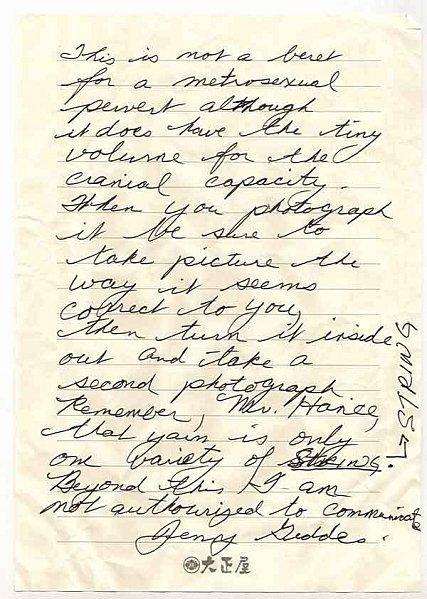 This is not a beret
for a metrosexual
pervert although
it does have the tiny
volume for the
cranial capacity.
When you photograph
it be sure to
take picture the
way it seems
correct to you,
then turn it inside
out and take a
second photograph
Remember, Mr. Hanee,
that yarn is only
one variety of String!
→ STRING
Beyond this I am
not authourized to communicate
Jenny Geddes.
大正屋